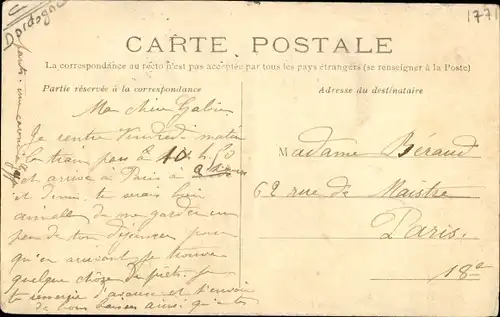 Dordogne
1771
CARTE POSTALE
La correspondance au recto n'est pas acceptée par tous les pays étrangers (se renseigner à la Poste)
Partie réservée à la correspondance
Adresse du destinataire
Ma chère
Je rentre Vendredi matin
le train part à 10 h. 50
et arrive à Paris à
et demie, te serais bien
de me garder un
peu de ton déjeuner pour
qu'en arrivant je trouve
quelque chose de prêt. Je
te remercie d'avance et t'envoie
de bons baisers ainsi qu'à tes
Madame Béraud
62 rue de Maistre
Paris.
18e